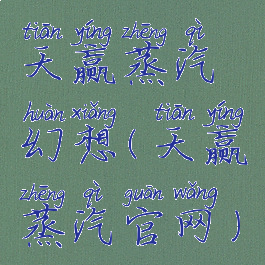 tiān yíng zhēng qì
天赢蒸汽
huàn xiǎng tiān yíng
幻想(天赢
zhēng qì guān wǎng
蒸汽官网)